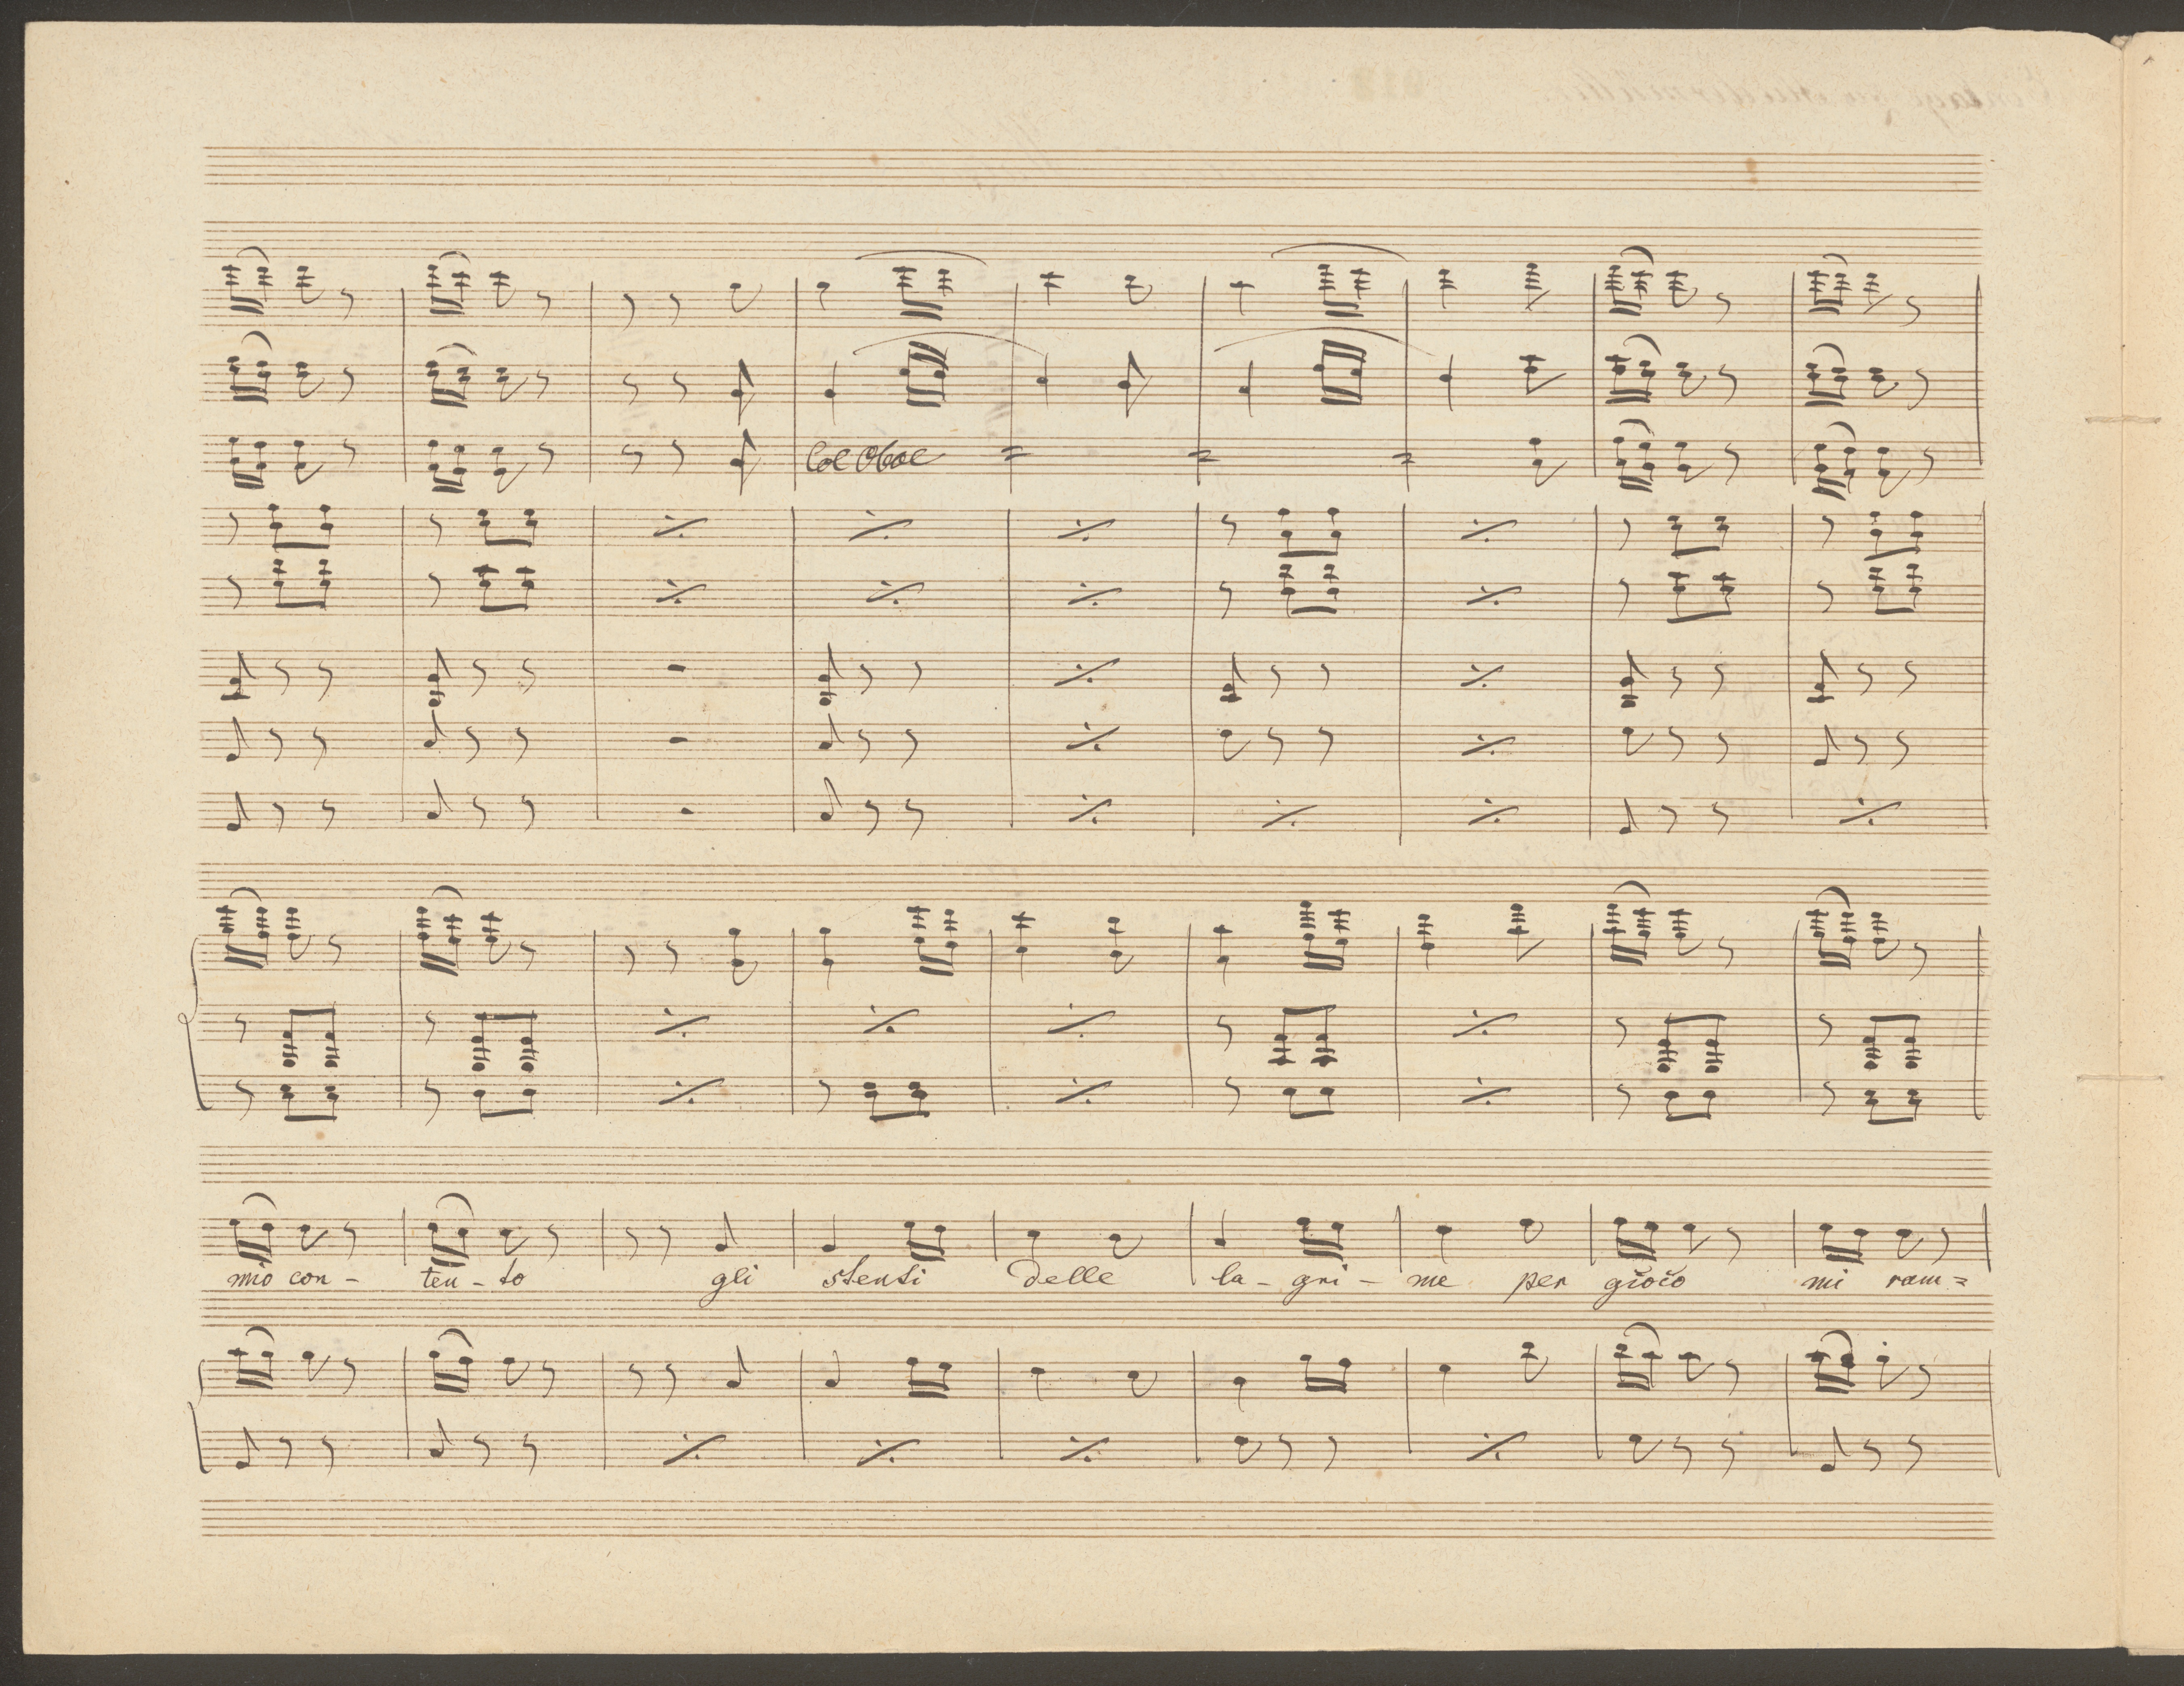 Col Oboe
mio con - ten - to gli stenti delle la - gri - me per gioco mi ram =